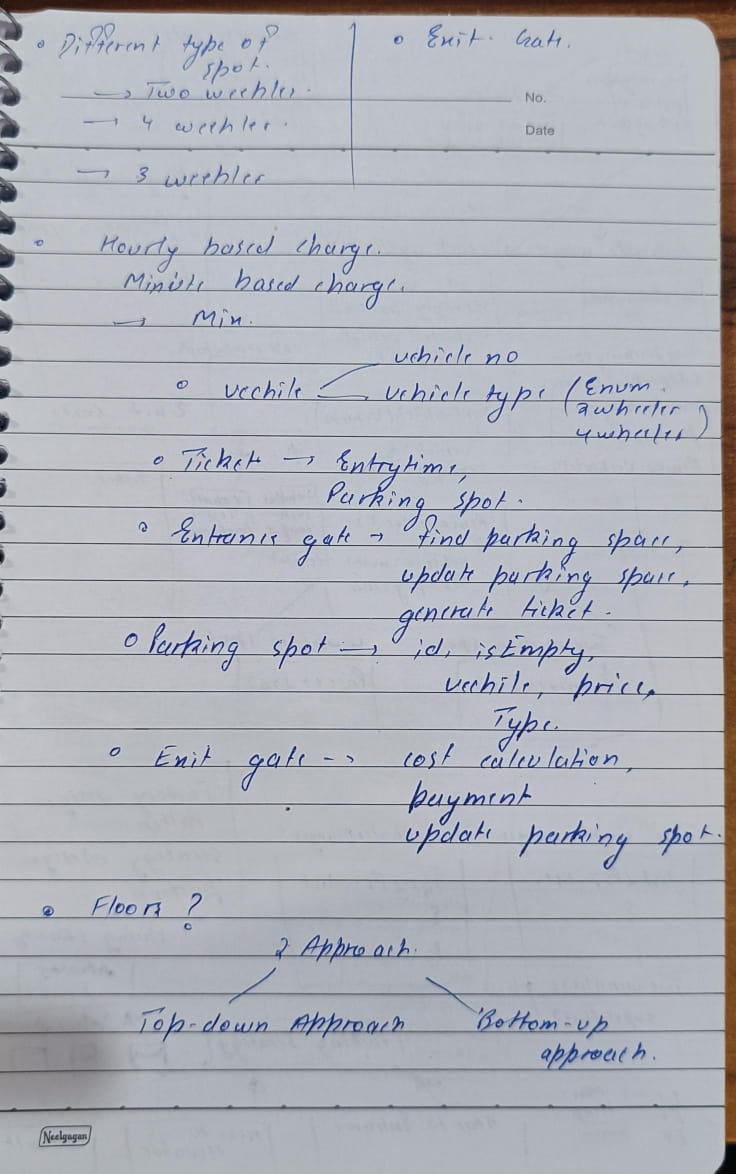 Different type of
spot.
→ Two weehler.
→ 4 weehler.
→ 3 weehler
Exit. Gate.
No.
Date
Hourly based charge.
Minute based charge.
→ Min.
vechile
vehicle no
vehicle type (Enum.
2wheeler
4wheeler)
Ticket → Entrytime,
Parking spot.
Entrance gate → find parking space,
update parking space,
generate ticket.
Parking spot → id, isEmpty,
vechile, price,
Type.
Exit gate --> cost calculation,
payment
update parking spot.
Floors?
2 Approach.
Top-down Approach
Bottom-up
approach.
Neelgagan